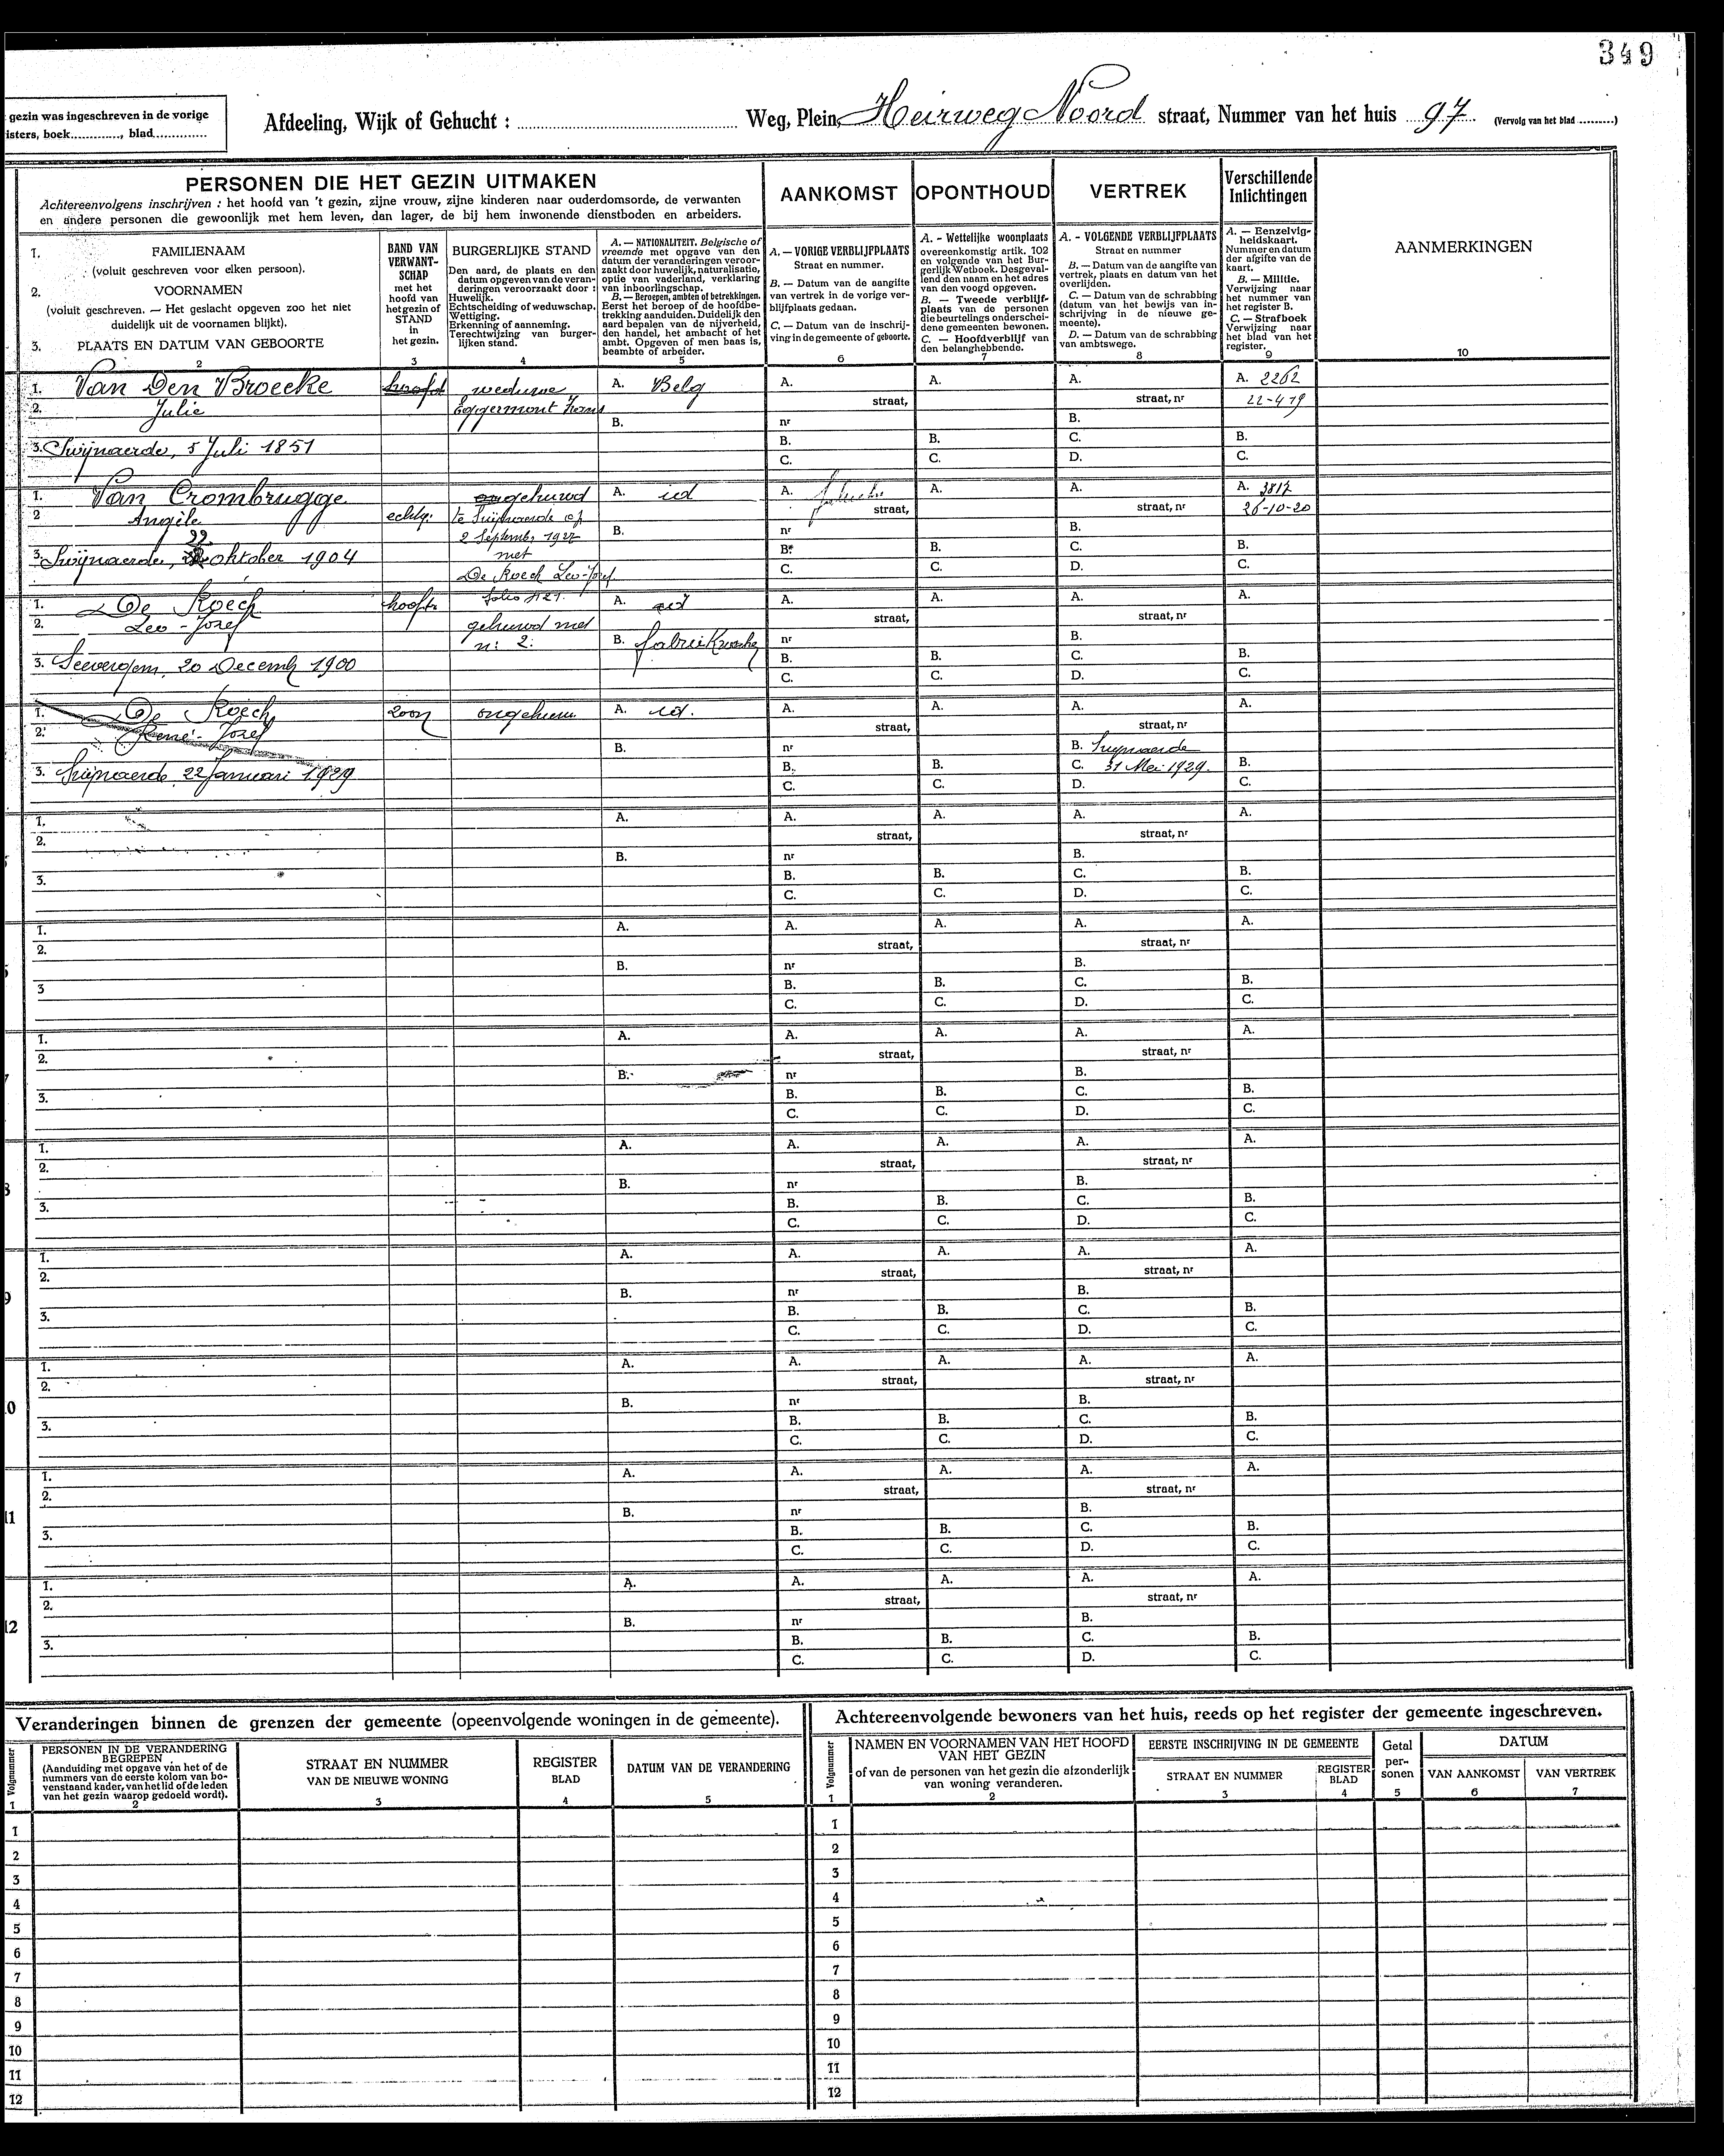 349
gezin was ingeschreven in de vorige
isters, boek............, blad..............
Afdeeling, Wijk of Gehucht : ........................ Weg, Plein, Heirweg Noord straat, Nummer van het huis 97 (Vervolg van het blad .........)
PERSONEN DIE HET GEZIN UITMAKEN
Achtereenvolgens inschrijven : het hoofd van 't gezin, zijne vrouw, zijne kinderen naar ouderdomsorde, de verwanten
en andere personen die gewoonlijk met hem leven, dan lager, de bij hem inwonende dienstboden en arbeiders.
AANKOMST
OPONTHOUD
VERTREK
Verschillende
Inlichtingen
1. FAMILIENAAM
(voluit geschreven voor elken persoon).
2. VOORNAMEN
(voluit geschreven. — Het geslacht opgeven zoo het niet
duidelijk uit de voornamen blijkt).
3. PLAATS EN DATUM VAN GEBOORTE
2
BAND VAN
VERWANT-
SCHAP
met het
hoofd van
het gezin of
STAND
in
het gezin.
3
BURGERLIJKE STAND
Den aard, de plaats en den
datum opgeven van de veran-
deringen veroorzaakt door :
Huwelijk.
Echtscheiding of weduwschap.
Wettiging.
Erkenning of aanneming.
Terechtwijzing van burger-
lijken stand.
4
A. — NATIONALITEIT. Belgische of
vreemde met opgave van den
datum der veranderingen veroor-
zaakt door huwelijk, naturalisatie,
optie van vaderland, verklaring
van inboorlingschap.
B. — Beroepen, ambten of betrekkingen.
Eerst het beroep of de hoofdbe-
trekking aanduiden. Duidelijk den
aard bepalen van de nijverheid,
den handel, het ambacht of het
ambt. Opgeven of men baas is,
beambte of arbeider.
5
A. — VORIGE VERBLIJFPLAATS
Straat en nummer.
B. — Datum van de aangifte
van vertrek in de vorige ver-
blijfplaats gedaan.
C. — Datum van de inschrij-
ving in de gemeente of geboorte.
6
A. - Wettelijke woonplaats
overeenkomstig artik. 102
en volgende van het Bur-
gerlijk Wetboek. Desgeval-
lend den naam en het adres
van den voogd opgeven.
B. — Tweede verblijf-
plaats van de personen
die beurtelings onderschei-
dene gemeenten bewonen.
C. — Hoofdverblijf van
den belanghebbende.
7
A. - VOLGENDE VERBLIJFPLAATS
Straat en nummer
B. — Datum van de aangifte van
vertrek, plaats en datum van het
overlijden.
C. — Datum van de schrabbing
(datum van het bewijs van in-
schrijving in de nieuwe ge-
meente).
D. — Datum van de schrabbing
van ambtswege.
8
A. — Eenzelvig-
heidskaart.
Nummer en datum
der afgifte van de
kaart.
B. — Militie.
Verwijzing naar
het nummer van
het register B.
C. — Strafboek
Verwijzing naar
het blad van het
register.
9
AANMERKINGEN
10
1. Van Den Broecke hoofd weduwe A. Belg A. A. A. A. 2262
2. Julie Eggermont straat, straat, nr 22-4-19
B. nr B.
3. Swijnaerde, 5 Juli 1851 B. B. C. B.
C. C. D. C.
1. Van Crombrugge ongehuwd A. id A. A. A. A. 3817
2 Angèle echtg: te Swijnaerde op straat, straat, nr 26-10-20
22 2 September 1927 B. nr B.
3. Swijnaerde, oktober 1904 met B. B. C. B.
De Roeck Leo-Jozef C. C. D. C.
folio 421.
1. De Roeck hoofd A. id A. A. A. A.
2. Leo-Jozef gehuwd met straat, straat, nr
n: 2. B. nr B.
3. Seevergem, 20 Decemb 1900 B. B. C. B.
C. C. D. C.
1. De Roeck zoon ongehuw. A. id. A. A. A. A.
2. René-Jozef straat, straat, nr
B. nr B. Swijnaerde
3. Swijnaerde 22 Januari 1929 B. B. C. 31 Mei 1929. B.
C. C. D. C.
1. A. A. A. A. A.
2. straat, straat, nr
B. nr B.
3. B. B. C. B.
C. C. D. C.
1. A. A. A. A. A.
2. straat, straat, nr
B. nr B.
3 B. B. C. B.
C. C. D. C.
1. A. A. A. A. A.
2. straat, straat, nr
7 B. nr B.
3. B. B. C. B.
C. C. D. C.
1. A. A. A. A. A.
2. straat, straat, nr
8 B. nr B.
3. B. B. C. B.
C. C. D. C.
1. A. A. A. A. A.
2. straat, straat, nr
9 B. nr B.
3. B. B. C. B.
C. C. D. C.
1. A. A. A. A. A.
2. straat, straat, nr
0 B. nr B.
3. B. B. C. B.
C. C. D. C.
1. A. A. A. A. A.
2. straat, straat, nr
11 B. nr B.
3. B. B. C. B.
C. C. D. C.
1. A. A. A. A. A.
2. straat, straat, nr
12 B. nr B.
3. B. B. C. B.
C. C. D. C.
Veranderingen binnen de grenzen der gemeente (opeenvolgende woningen in de gemeente).
Volgnummer
1
PERSONEN IN DE VERANDERING
BEGREPEN
(Aanduiding met opgave van het of de
nummers van de eerste kolom van bo-
venstaand kader, van het lid of de leden
van het gezin waarop gedoeld wordt).
2
STRAAT EN NUMMER
VAN DE NIEUWE WONING
3
REGISTER
BLAD
4
DATUM VAN DE VERANDERING
5
1
2
3
4
5
6
7
8
9
10
11
12
Achtereenvolgende bewoners van het huis, reeds op het register der gemeente ingeschreven.
Volgnummer
1
NAMEN EN VOORNAMEN VAN HET HOOFD
VAN HET GEZIN
of van de personen van het gezin die afzonderlijk
van woning veranderen.
2
EERSTE INSCHRIJVING IN DE GEMEENTE
STRAAT EN NUMMER
3
REGISTER
BLAD
4
Getal
per-
sonen
5
DATUM
VAN AANKOMST
6
VAN VERTREK
7
1
2
3
4
5
6
7
8
9
10
11
12